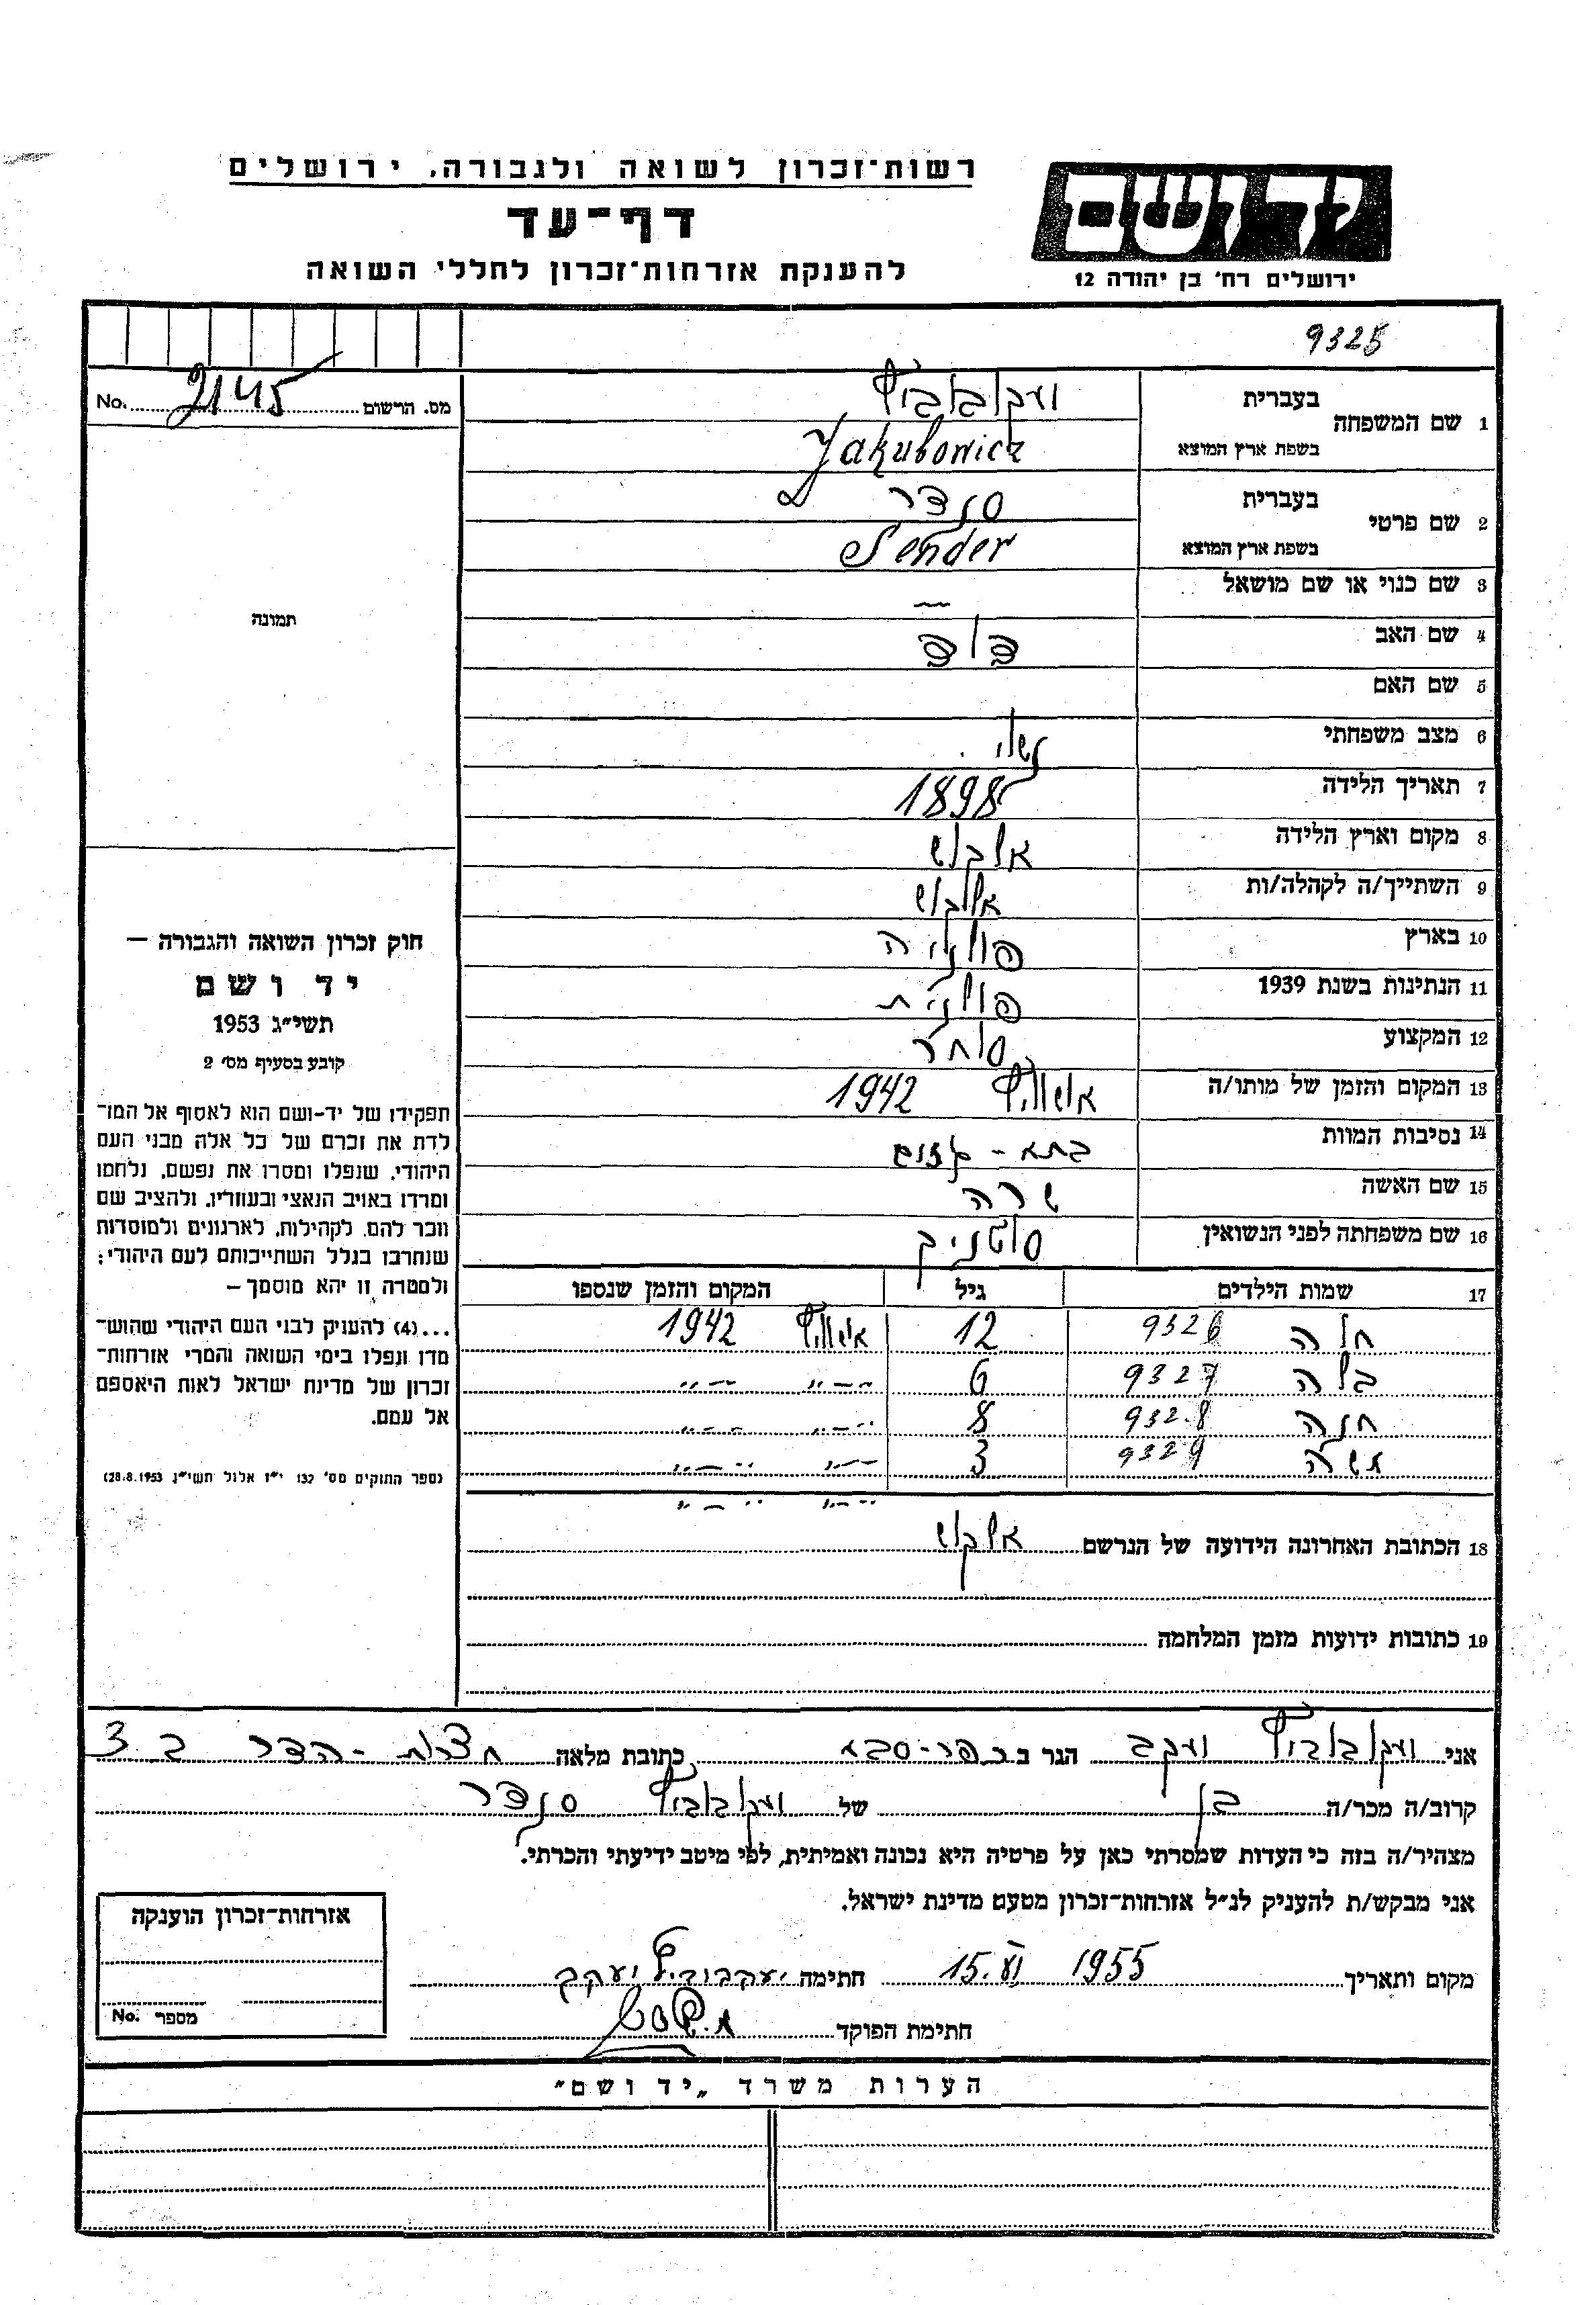 רשות־זכרון לשואה ולגבורה, ירושלים
דף־עד
להענקת אזרחות־זכרון לחללי השואה
יד ושם
ירושלים רח' בן יהודה 12
9325
מס. הרשום 2145 No.
תמונה
1 שם המשפחה
בעברית יעקובוביץ
בשפת ארץ המוצא Jakubowicz
2 שם פרטי
בעברית סנדר
בשפת ארץ המוצא Sender
3 שם כנוי או שם מושאל —
4 שם האב
5 שם האם
6 מצב משפחתי נשוי.
7 תאריך הלידה 1898
8 מקום וארץ הלידה אולקוש
9 השתייך/ה לקהלה/ות אולקוש
10 בארץ פולניה
11 הנתינות בשנת 1939 פולנית
12 המקצוע סוחר
13 המקום והזמן של מותו/ה אושוויץ 1942
14 נסיבות המוות בתא-גזים
15 שם האשה שרה
16 שם משפחתה לפני הנשואין
17 שמות הילדים גיל המקום והזמן שנספו
9326 12 אושוויץ 1942
בלה 9327 6 ״—״ ״—״
חנה 9328 8 ״—״ ״—״
9329 3 ״—״ ״—״
״—״ ״—״
18 הכתובת האחרונה הידועה של הנרשם אולקוש
19 כתובות ידועות מזמן המלחמה
חוק זכרון השואה והגבורה —
יד ושם
תשי״ג 1953
קובע בסעיף מס' 2
תפקידו של יד-ושם הוא לאסוף אל המו־
לדת את זכרם של כל אלה מבני העם
היהודי, שנפלו ומסרו את נפשם, נלחמו
ומרדו באויב הנאצי ובעוזריו, ולהציב שם
וזכר להם, לקהילות, לארגונים ולמוסדות
שנחרבו בגלל השתייכותם לעם היהודי;
ולמטרה זו יהא מוסמך —
...(4) להעניק לבני העם היהודי שהוש־
מדו ונפלו בימי השואה והמרי אזרחות־
זכרון של מדינת ישראל לאות היאספם
אל עמם.
(ספר החוקים מס' 132 י״ז אלול תשי״ג 28.8.1953)
אני יעקובוביץ יעקב הגר ב כפר-סבא כתובת מלאה חצרות-הדר ב 3
קרוב/ה מכר/ה בן של יעקובוביץ סנדר
מצהיר/ה בזה כי העדות שמסרתי כאן על פרטיה היא נכונה ואמיתית, לפי מיטב ידיעתי והכרתי.
אני מבקש/ת להעניק לנ״ל אזרחות־זכרון מטעם מדינת ישראל.
מקום ותאריך 15. VI 1955 חתימה יעקבוביץ יעקב
חתימת הפוקד
אזרחות־זכרון הוענקה
מספר No.
הערות משרד „יד ושם״